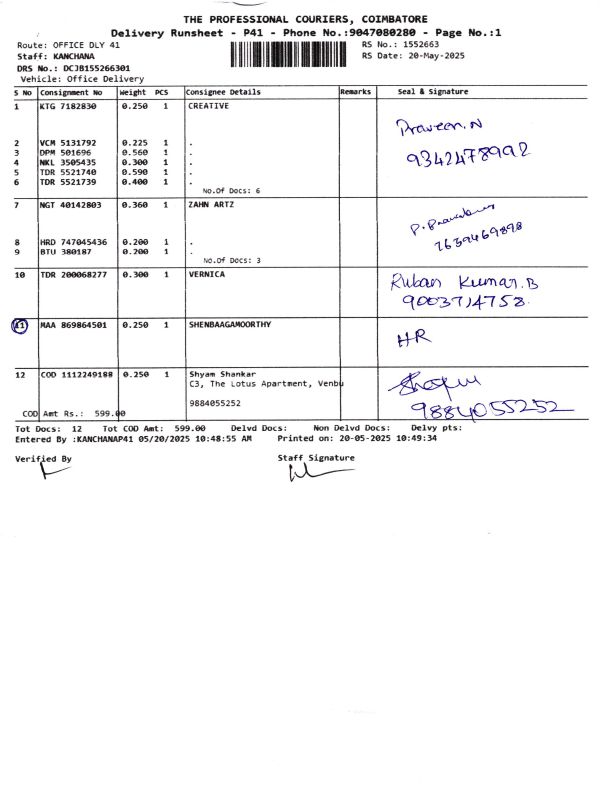 THE PROFESSIONAL COURIERS, COIMBATORE
Delivery Runsheet - P41 - Phone No.:9047080280 - Page No.:1
Route: OFFICE DLY 41 RS No.: 1552663
Staff: KANCHANA RS Date: 20-May-2025
DRS No.: DCJB155266301
Vehicle: Office Delivery
S No Consignment No Weight PCS Consignee Details Remarks Seal & Signature
1 KTG 7182830 0.250 1 CREATIVE
Praveen.N
2 VCM 5131792 0.225 1 .
3 DPM 501696 0.560 1 .
9342478992
4 NKL 3505435 0.300 1 .
5 TDR 5521740 0.590 1 .
6 TDR 5521739 0.400 1 .
No.Of Docs: 6
7 NGT 40142803 0.360 1 ZAHN ARTZ
7639469898
8 HRD 747045436 0.200 1 .
9 BTU 380187 0.200 1 .
No.Of Docs: 3
10 TDR 200068277 0.300 1 VERNICA
Ruban Kumar.B
9003714758
11 MAA 869864501 0.250 1 SHENBAAGAMOORTHY
HR
12 COD 1112249188 0.250 1 Shyam Shankar
C3, The Lotus Apartment, Venbu
9884055252
9884055252
COD Amt Rs.: 599.00
Tot Docs: 12 Tot COD Amt: 599.00 Delvd Docs: Non Delvd Docs: Delvy pts:
Entered By :KANCHANAP41 05/20/2025 10:48:55 AM Printed on: 20-05-2025 10:49:34
Verified By Staff Signature